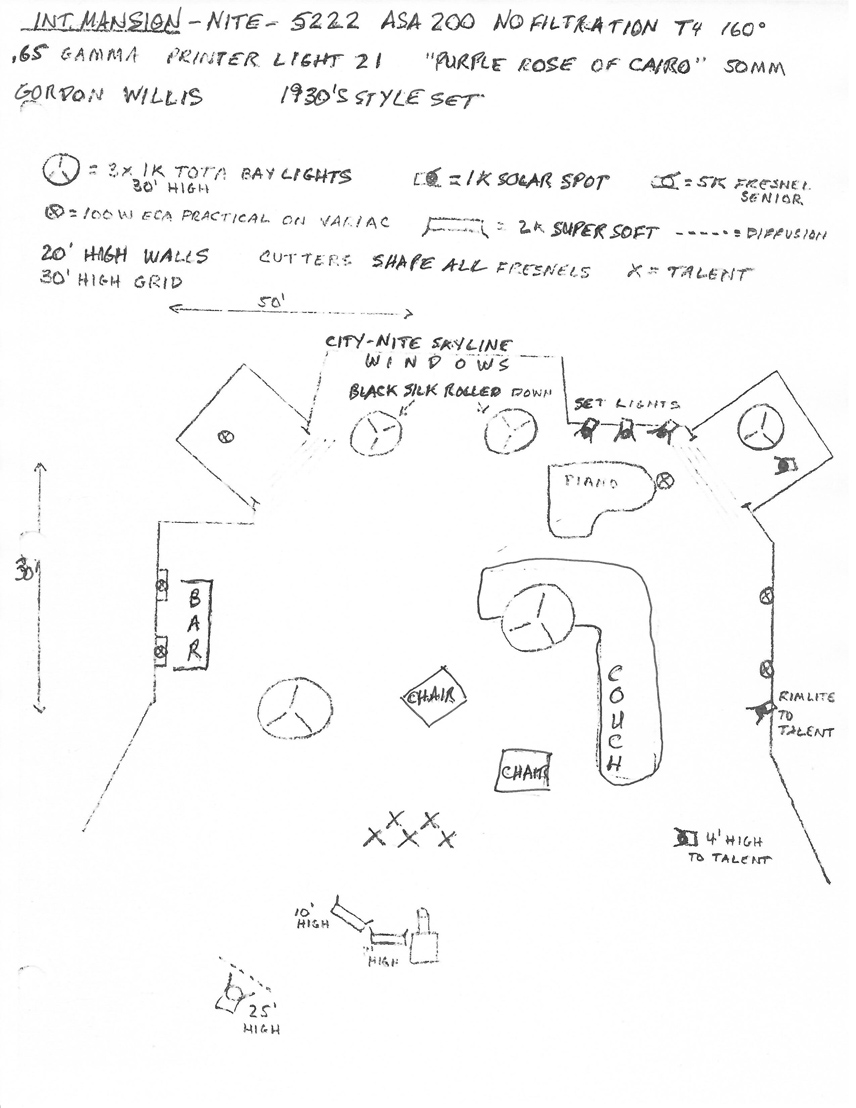 INT. MANSION - NITE - 5222 ASA 200 NO FILTRATION T4 160°
.65 GAMMA PRINTER LIGHT 21 "PURPLE ROSE OF CAIRO" 50MM
GORDON WILLIS 1930'S STYLE SET
= 3x 1K TOTA BAY LIGHTS
30' HIGH
= 1K SOLAR SPOT
= 5K FRESNEL
SENIOR
= 100W ECA PRACTICAL ON VARIAC
= 2K SUPER SOFT
= DIFFUSION
20' HIGH WALLS CUTTERS SHAPE ALL FRESNELS X = TALENT
30' HIGH GRID
50'
CITY-NITE SKYLINE
WINDOWS
BLACK SILK ROLLED DOWN
SET LIGHTS
PIANO
30'
BAR
COUCH
CHAIR
RIMLITE
TO
TALENT
CHAIR
X X
X X X
4' HIGH
TO TALENT
10'
HIGH
HIGH
25'
HIGH